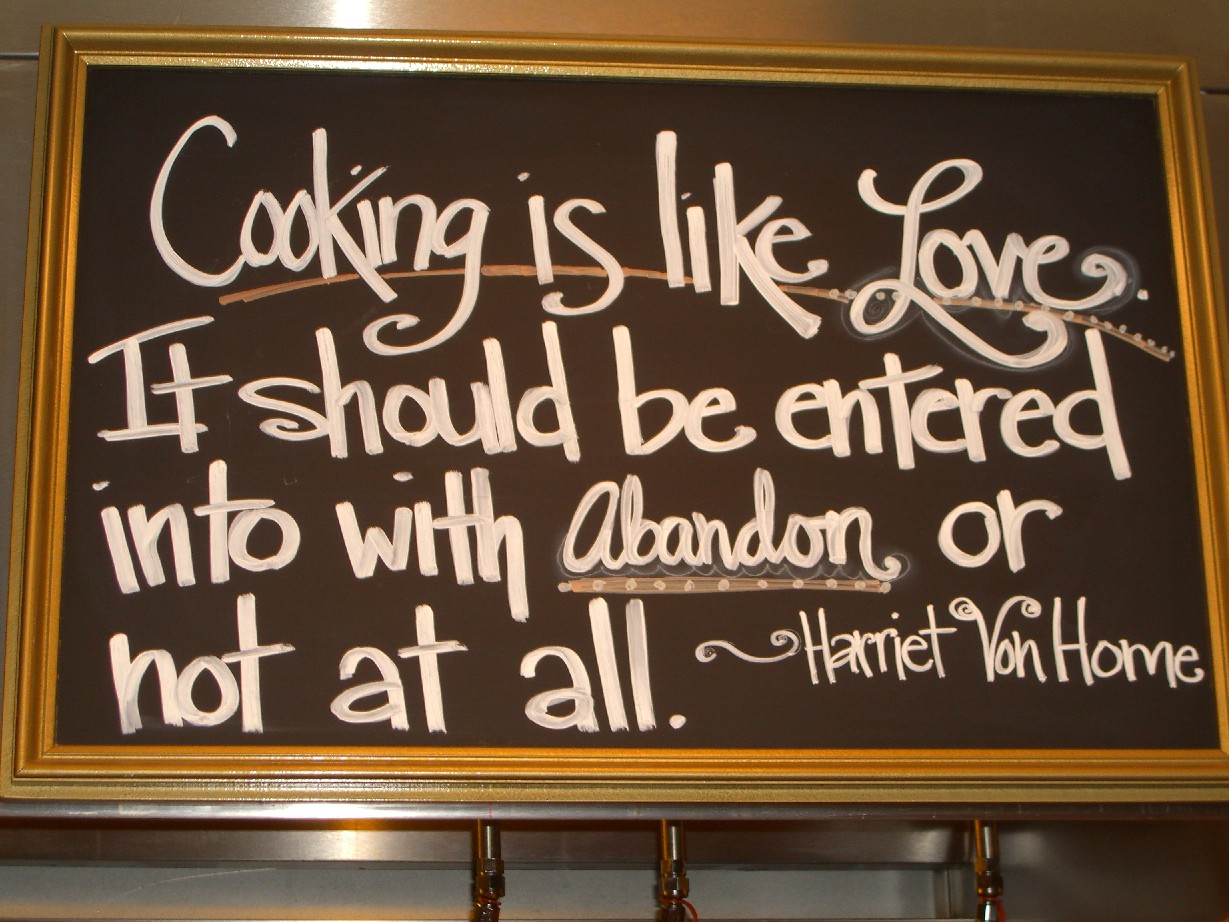 Cooking is like Love.
It should be entered
into with Abandon or
not at all. ~Harriet Von Home